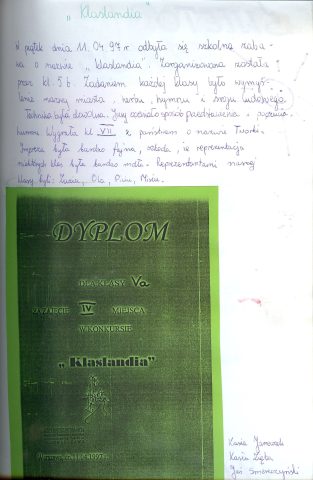 „Klaslandia"
W piątek dnia 11.04.97r. odbyła się szkolna zaba-
wa o nazwie: „Klaslandia". Zorganizowana została
przez kl. 5b. Zadaniem każdej klasy było wymyś-
lenie nazwy miasta, herbu, hymnu i stroju ludowego.
Technika była dowolna. Jury oceniało sposób przedstawienia i
humoru. Wygrała kl. VII z państwem o nazwie Tworki.
Impreza była bardzo fajna, szkoda, że reprezentacja
niektórych klas była bardzo mała. Reprezentantami naszej
klasy byli: Zuzia, Ola,
DYPLOM
DLA KLASY Va
ZA ZAJĘCIE IV MIEJSCA
W KONKURSIE
„Klaslandia"
Kasia
Kasia Zięba
Jaś